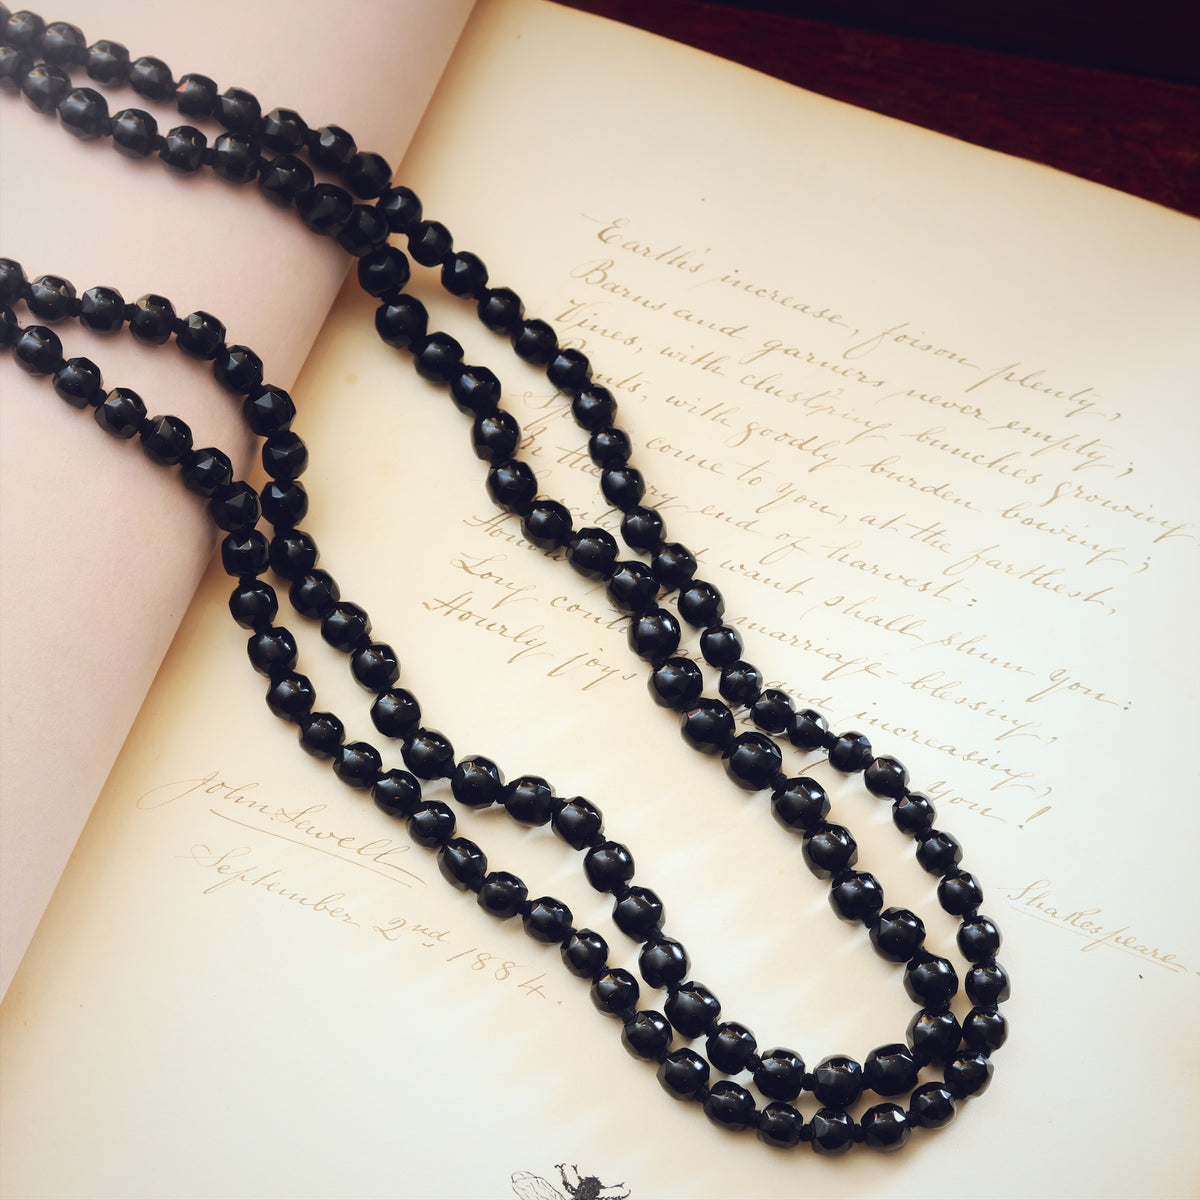 Earth's increase, foison plenty,
Barns and garners never empty;
Vines, with clust'ring bunches growing
Plants, with goodly burden bowing;
come to you, at the farthest,
In the very end of harvest:
want shall shun you:
Long marriage-blessing,
and increasing,
Hourly joys
you!
Shakespeare
John Sewell
September 2nd 1884.